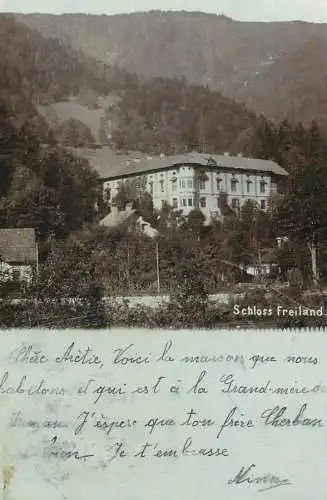 Schloss Freiland.
Chère Arétie, Voici la maison que nous
habitons et qui est à la Grand-mère de
J'éspère que ton frère Cherban
bien. Je t'embrasse